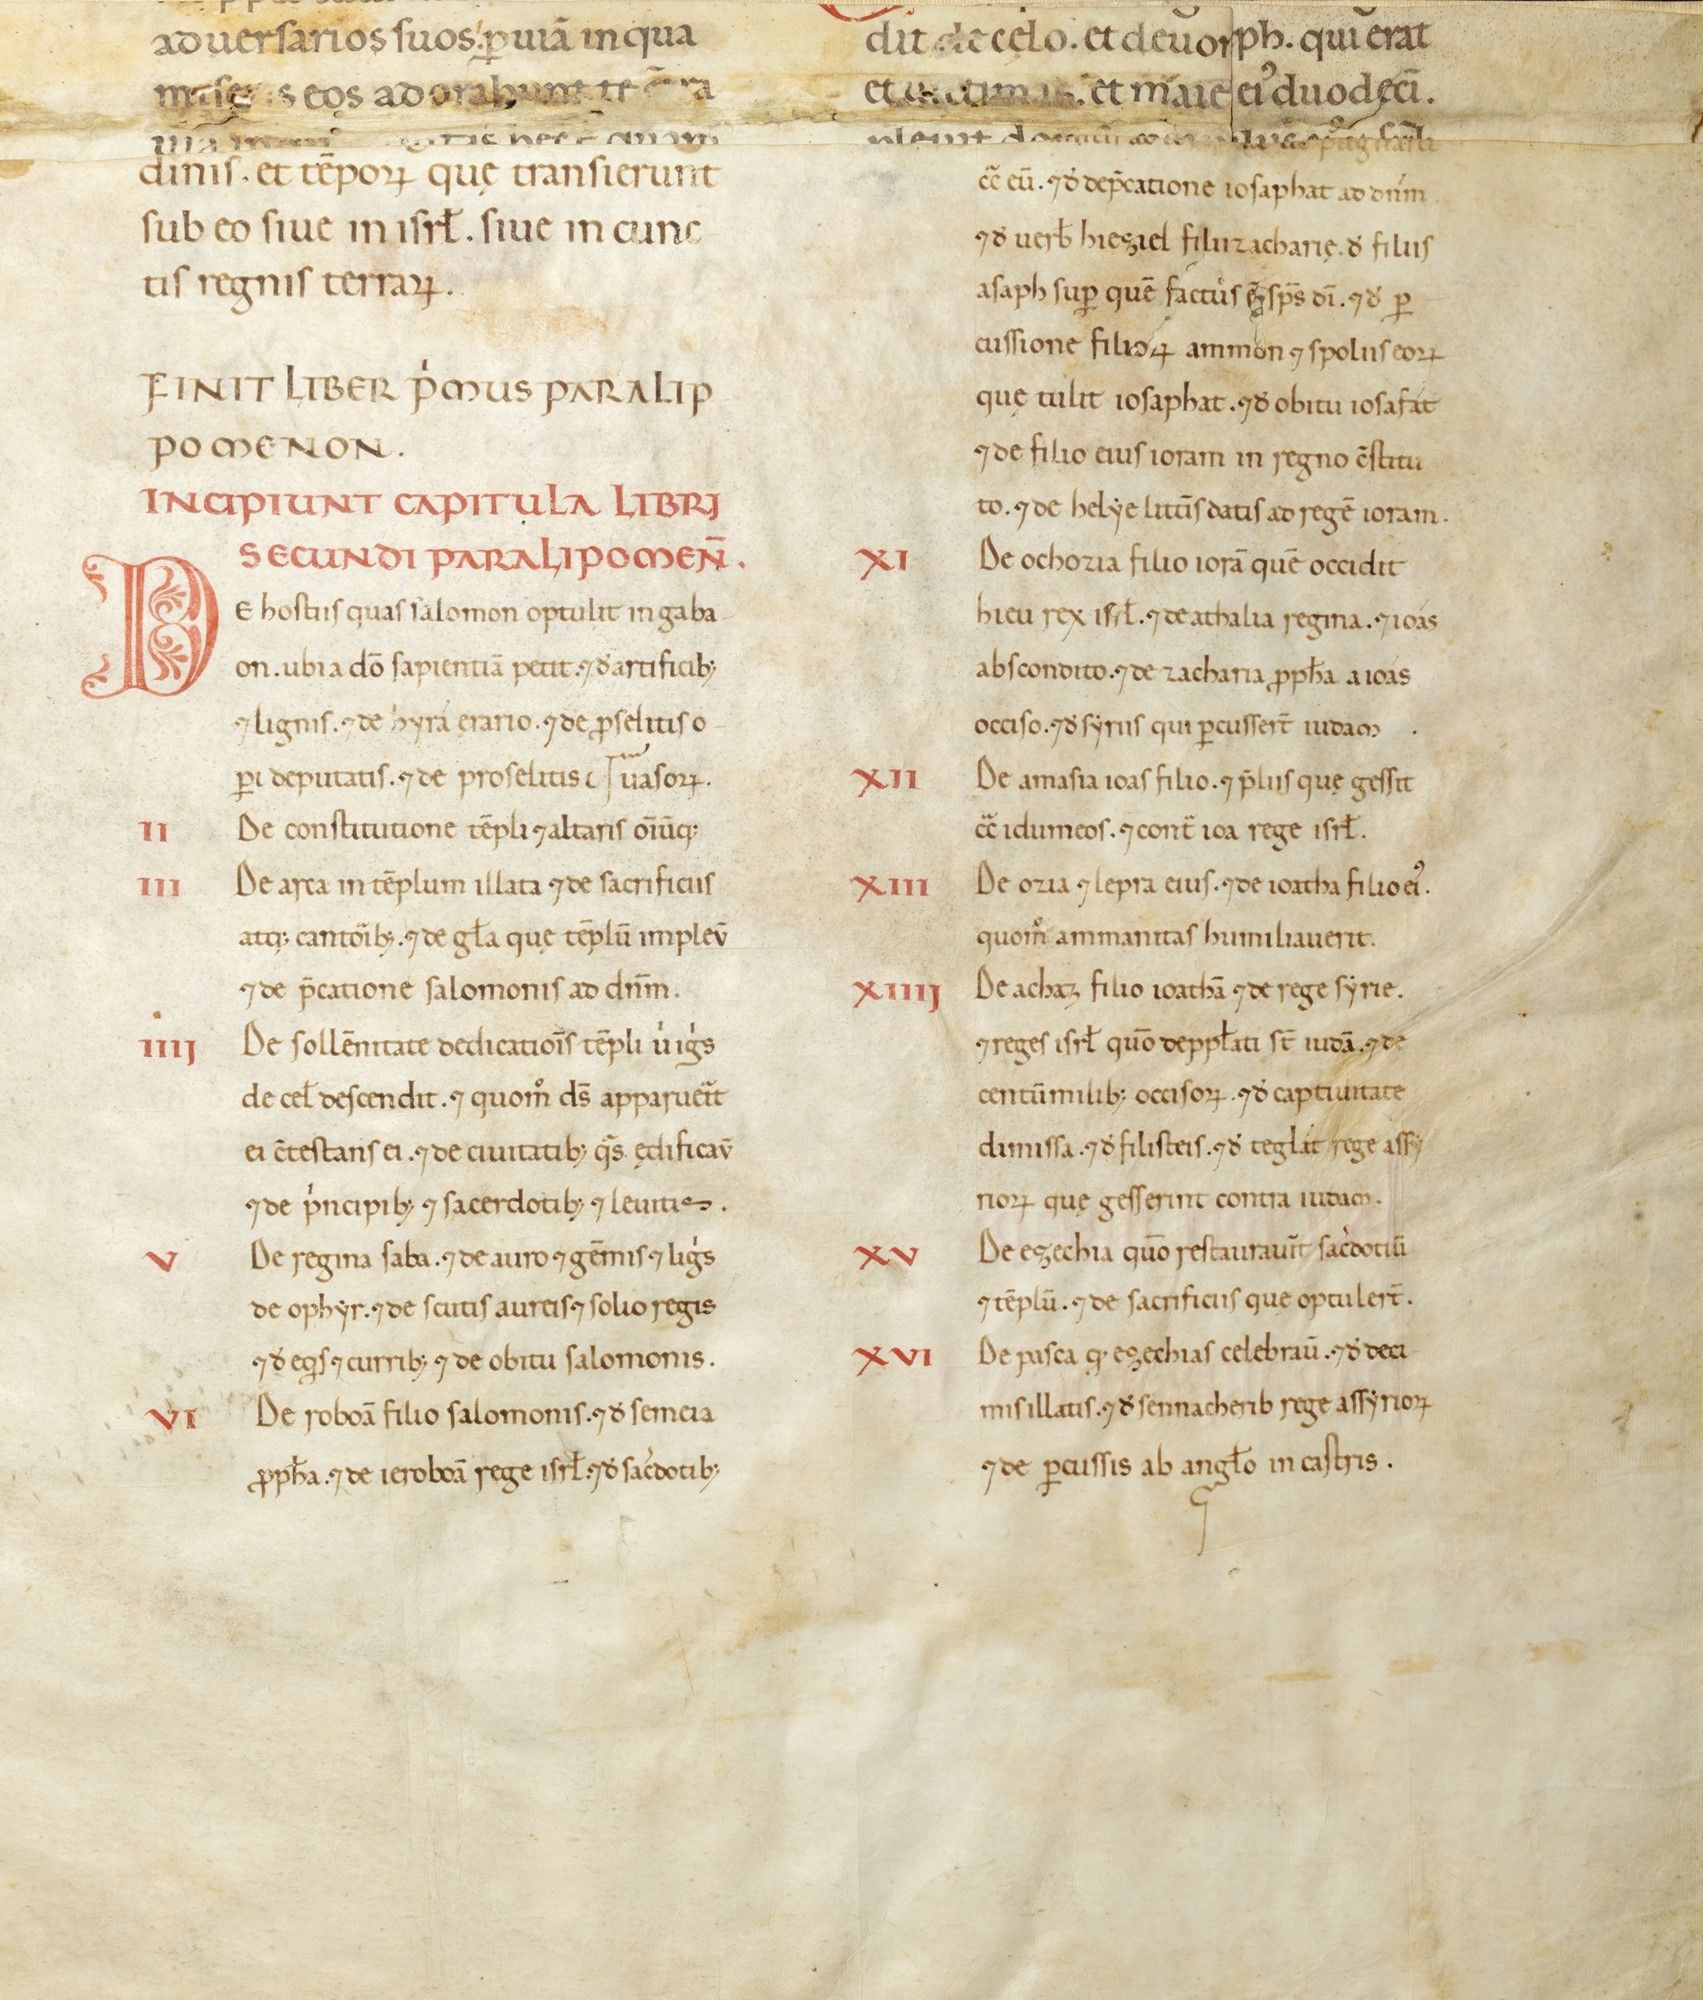 aduersarios suos. ꝑ uiā in qua
eos adorabunt te
dinis. et tēpoꝝ quę transierunt
sub eo siue in isrł. siue in cunc
tis regnis terraꝝ.
FINIT LIBER PͥMUS PARALIP
POMENON.
INCIPIUNT CAPITULA LIBRI
SECUNDI PARALIPOMEN̄.
DE hostiis quas salomon optulit in gaba
on. ubi a dō sapientiā petit. ⁊ đ artificibꝫ
⁊ lignis. ⁊ de hyrā erario. ⁊ de ꝓselitis o
ꝑi deputatis. ⁊ de proselitis uasoꝝ.
II De constitutione tēpli ⁊ altaris oīūqꝫ
III De arca in tēplum illata ⁊ de sacrificiis
atqꝫ cantoībꝫ. ⁊ de gła quę tēplū implev̄
⁊ de p̄catione salomonis ad dnm̄.
IIIJ De sollēnitate dedicatioīs tēpli uͥ igͥs
de ceł descendit. ⁊ quom̊ ds̄ apparuer̄it
ei c̄testans ei. ⁊ de ciuitatibꝫ qͣs ędificav̄
⁊ de pͥncipibꝫ ⁊ sacerdotibꝫ ⁊ leuitis.
V De regina saba. ⁊ de auro ⁊ gēmis ⁊ ligͥs
de ophyr. ⁊ de scutis aureis ⁊ solio regis
⁊ đ eqͥs ⁊ curribꝫ ⁊ de obitu salomonis.
VI De roboā filio salomonis. ⁊ đ semeia
ꝓph̄a. ⁊ de ieroboā rege isrł. ⁊ đ sac̓dotibꝫ
dit de cęlo. et deuor ph. qui erat
et uictimas. et maie ei᾿ duodeci.
cͣ eū. ⁊ đ dep̄catione iosaphat ad dnm̄
⁊ đ uerƀ hieziel filii zacharię. đ filiis
asaph suꝑ quē factus ē sps̄ dī. ⁊ đ ꝑ
cussione filioꝝ ammon ⁊ spoliis eoꝝ
quę tulit iosaphat. ⁊ đ obitu iosafat
⁊ de filio eius ioram in regno c̄stitu
to. ⁊ de helye litt̄is datis ad regē ioram.
XI De ochozia filio iorā quē occidit
hieu rex isrł. ⁊ de athalia regina. ⁊ ioas
abscondito. ⁊ de zacharia ꝓph̄a a ioas
occiso. ⁊ đ syriis qui ꝑcusser̄t iudam.
XII De amasia ioas filio. ⁊ p̄liis quę gessit
cͣ idumeos. ⁊ cont̄ ioa rege isrł.
XIII De ozia ⁊ lepra eius. ⁊ de ioatha filio ei᾿.
quom̊ ammanitas humiliauerit.
XIIIJ De achaz filio ioathā ⁊ de rege syrie.
⁊ reges isrł quō deppłati st̄ iudā. ⁊ de
centū milibꝫ occisoꝝ. ⁊ đ captiuitate
dimissa. ⁊ đ filisteis. ⁊ đ teglat rege assy
rioꝝ quę gesserint contra iudam.
XV De ezechia quō restaurauīt sac̓dotiū
⁊ tēplū. ⁊ de sacrificiis que optuler̄t.
XVI De pasca qͥ ezechias celebrau̅. ⁊ đ deci
mis illatis. ⁊ đ sennacherib rege assyrioꝝ
⁊ de ꝑcussis ab angło in castris.